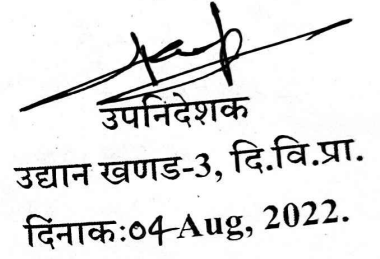 उपनिदेशक
उद्यान खणड-3, दि.वि.प्रा.
दिंनाक:04-Aug, 2022.